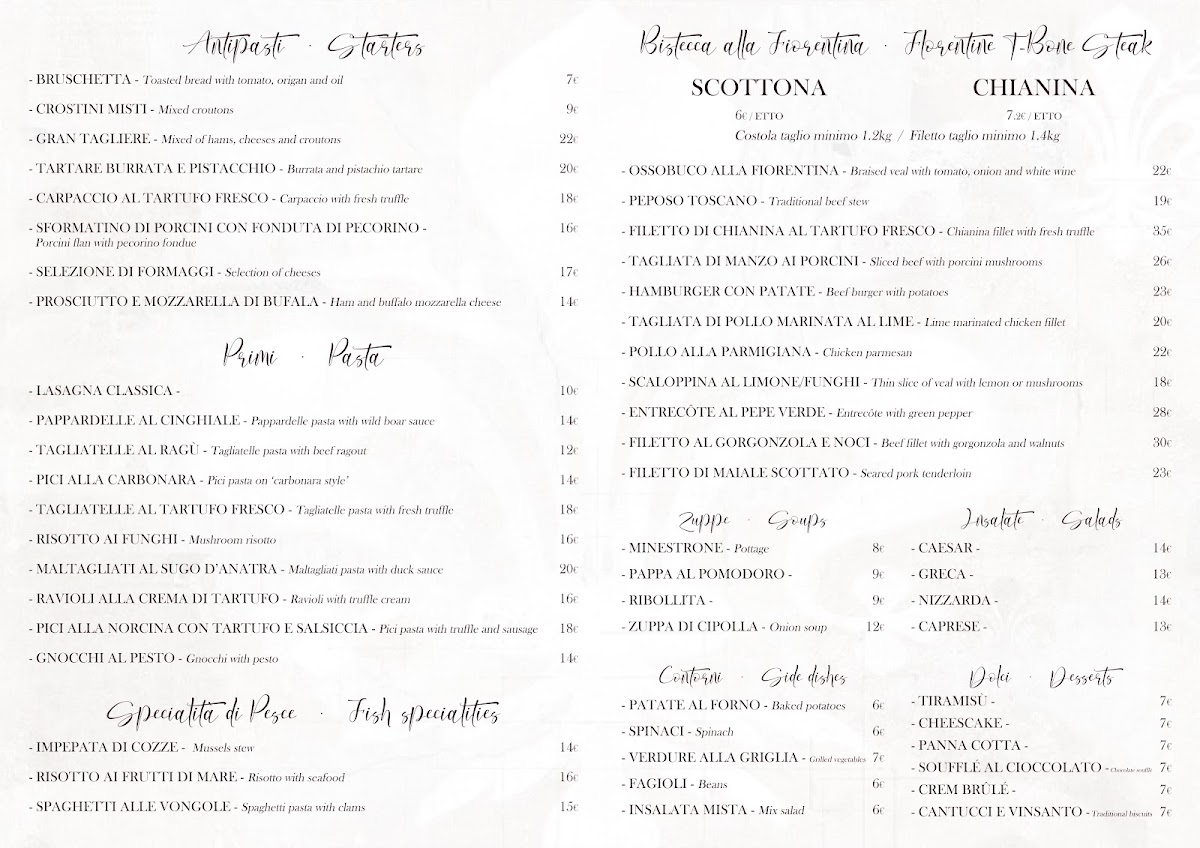 Antipasti · Starters
- BRUSCHETTA - Toasted bread with tomato, origan and oil 7€
- CROSTINI MISTI - Mixed croutons 9€
- GRAN TAGLIERE - Mixed of hams, cheeses and croutons 22€
- TARTARE BURRATA E PISTACCHIO - Burrata and pistachio tartare 20€
- CARPACCIO AL TARTUFO FRESCO - Carpaccio with fresh truffle 18€
- SFORMATINO DI PORCINI CON FONDUTA DI PECORINO - 16€
Porcini flan with pecorino fondue
- SELEZIONE DI FORMAGGI - Selection of cheeses 17€
- PROSCIUTTO E MOZZARELLA DI BUFALA - Ham and buffalo mozzarella cheese 14€
Primi · Pasta
- LASAGNA CLASSICA - 10€
- PAPPARDELLE AL CINGHIALE - Pappardelle pasta with wild boar sauce 14€
- TAGLIATELLE AL RAGÙ - Tagliatelle pasta with beef ragout 12€
- PICI ALLA CARBONARA - Pici pasta on ‘carbonara style’ 14€
- TAGLIATELLE AL TARTUFO FRESCO - Tagliatelle pasta with fresh truffle 18€
- RISOTTO AI FUNGHI - Mushroom risotto 16€
- MALTAGLIATI AL SUGO D’ANATRA - Maltagliati pasta with duck sauce 20€
- RAVIOLI ALLA CREMA DI TARTUFO - Ravioli with truffle cream 16€
- PICI ALLA NORCINA CON TARTUFO E SALSICCIA - Pici pasta with truffle and sausage 18€
- GNOCCHI AL PESTO - Gnocchi with pesto 14€
Specialità di Pesce · Fish specialities
- IMPEPATA DI COZZE - Mussels stew 14€
- RISOTTO AI FRUTTI DI MARE - Risotto with seafood 16€
- SPAGHETTI ALLE VONGOLE - Spaghetti pasta with clams 15€
Bistecca alla Fiorentina · Florentine T-Bone Steak
SCOTTONA CHIANINA
6€ / ETTO 7.2€ / ETTO
Costola taglio minimo 1.2kg / Filetto taglio minimo 1.4kg
- OSSOBUCO ALLA FIORENTINA - Braised veal with tomato, onion and white wine 22€
- PEPOSO TOSCANO - Traditional beef stew 19€
- FILETTO DI CHIANINA AL TARTUFO FRESCO - Chianina fillet with fresh truffle 35€
- TAGLIATA DI MANZO AI PORCINI - Sliced beef with porcini mushrooms 26€
- HAMBURGER CON PATATE - Beef burger with potatoes 23€
- TAGLIATA DI POLLO MARINATA AL LIME - Lime marinated chicken fillet 20€
- POLLO ALLA PARMIGIANA - Chicken parmesan 22€
- SCALOPPINA AL LIMONE/FUNGHI - Thin slice of veal with lemon or mushrooms 18€
- ENTRECÔTE AL PEPE VERDE - Entrecôte with green pepper 28€
- FILETTO AL GORGONZOLA E NOCI - Beef fillet with gorgonzola and walnuts 30€
- FILETTO DI MAIALE SCOTTATO - Seared pork tenderloin 23€
Zuppe · Soups
- MINESTRONE - Pottage 8€
- PAPPA AL POMODORO - 9€
- RIBOLLITA - 9€
- ZUPPA DI CIPOLLA - Onion soup 12€
Insalate · Salads
- CAESAR - 14€
- GRECA - 13€
- NIZZARDA - 14€
- CAPRESE - 13€
Contorni · Side dishes
- PATATE AL FORNO - Baked potatoes 6€
- SPINACI - Spinach 6€
- VERDURE ALLA GRIGLIA - Grilled vegetables 7€
- FAGIOLI - Beans 6€
- INSALATA MISTA - Mix salad 6€
Dolci · Desserts
- TIRAMISÙ - 7€
- CHEESCAKE - 7€
- PANNA COTTA - 7€
- SOUFFLÉ AL CIOCCOLATO - Chocolate soufflè 7€
- CREM BRÛLÉ - 7€
- CANTUCCI E VINSANTO - Traditional biscuits 7€